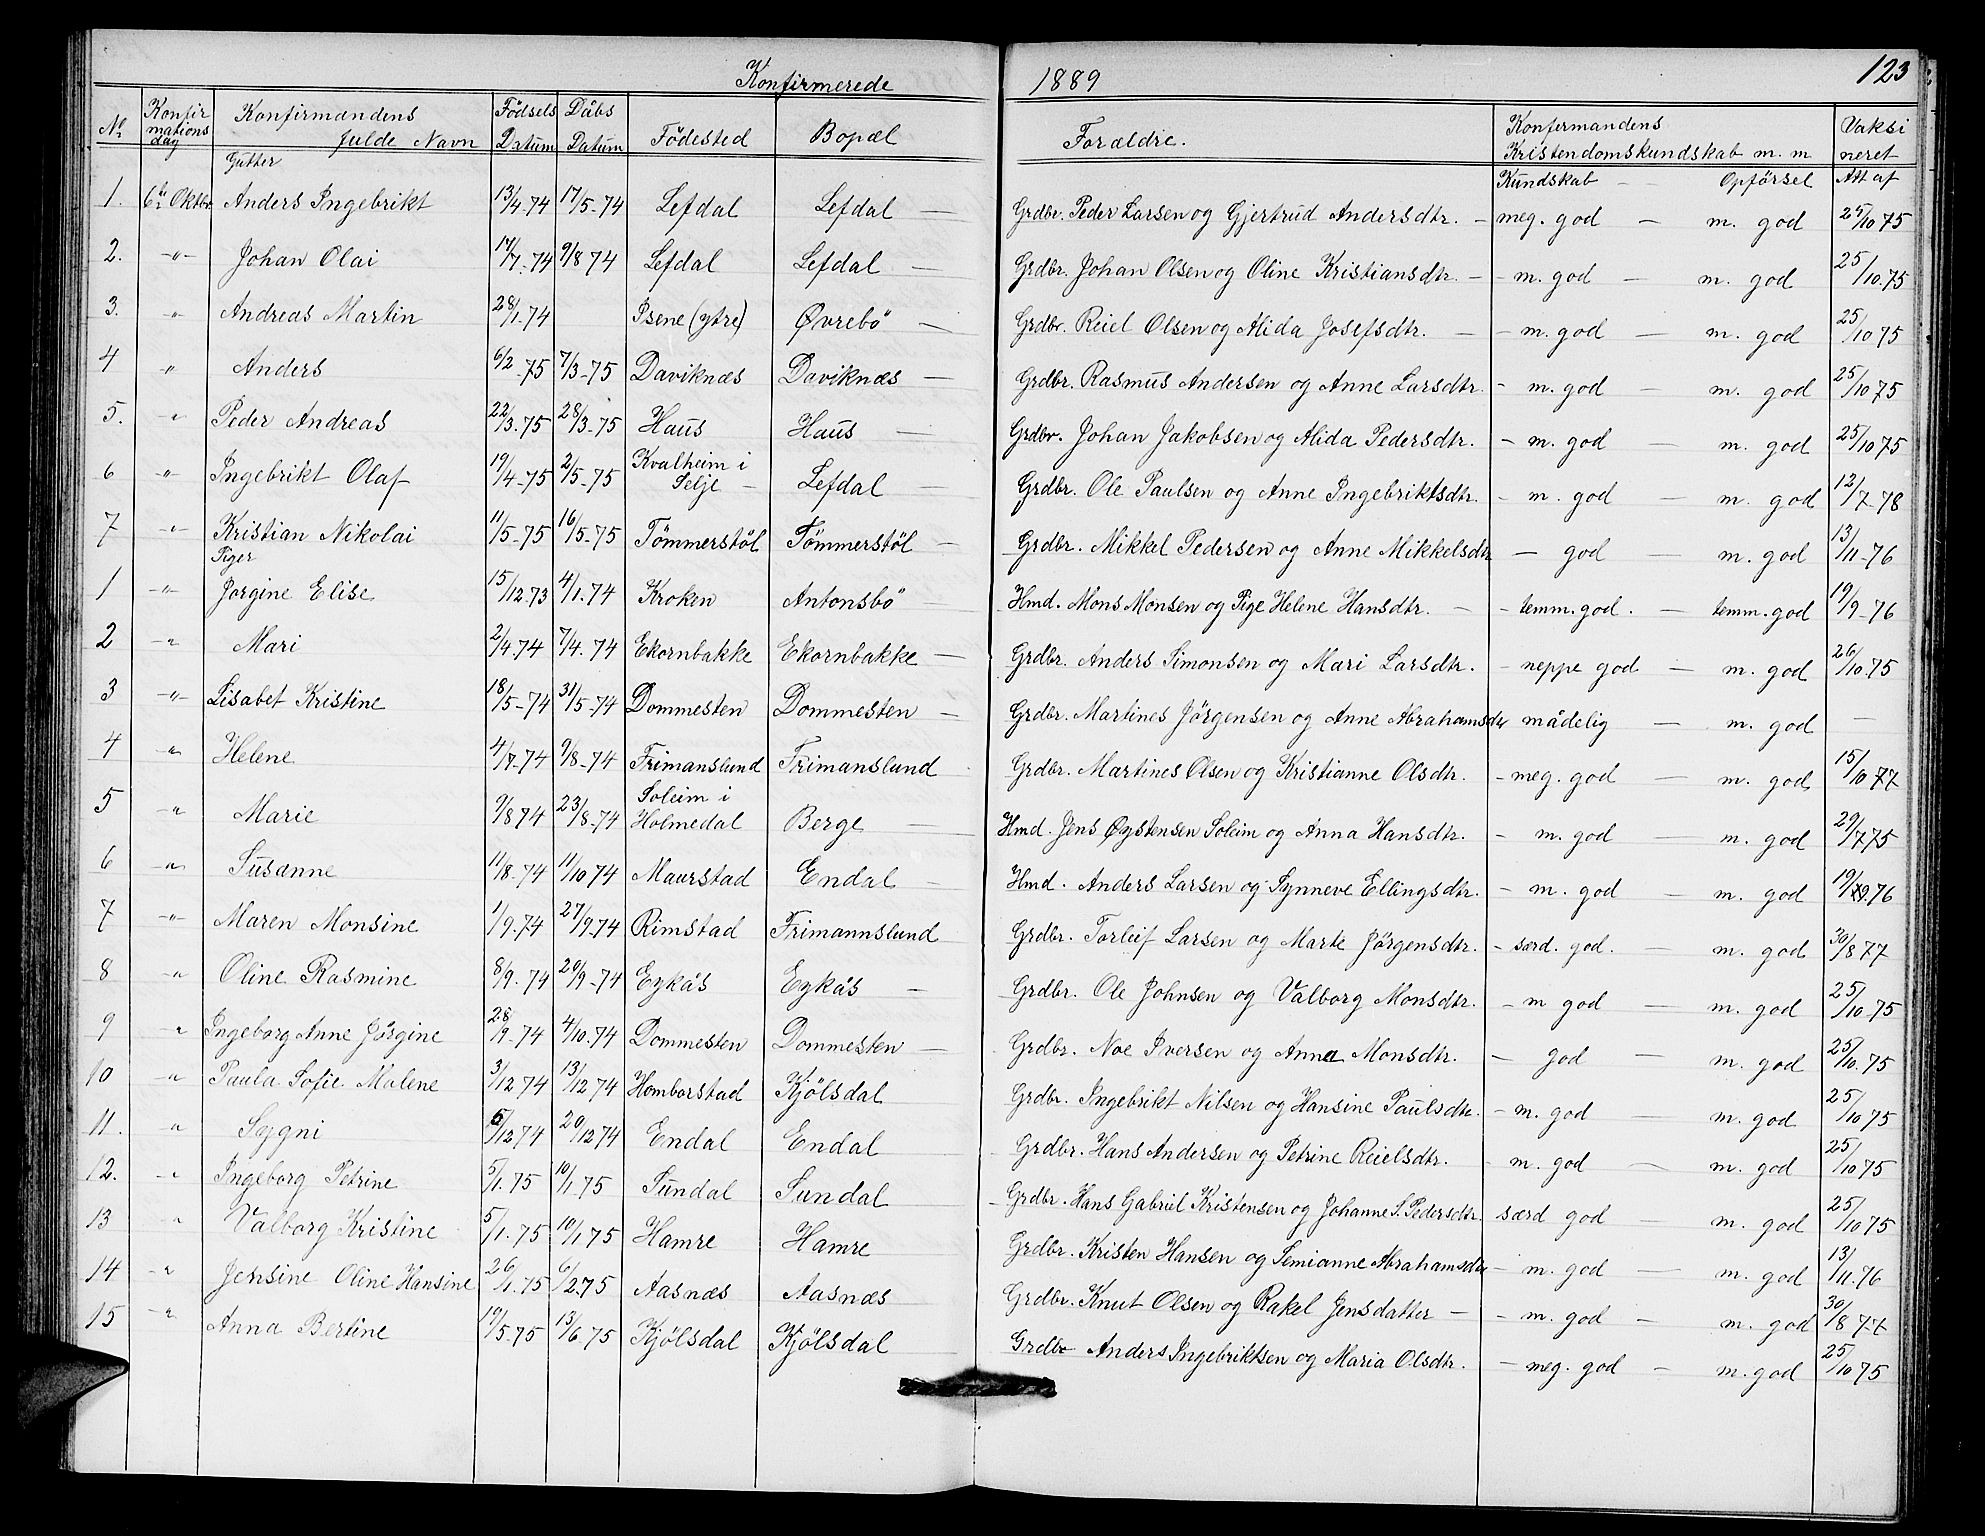 Konfirmerede 1889 123
No Konfirmations dag Konfirmandens fulde Navn Födsels Datum Dåbs Datum Födested Bopæl Forældre. Konfirmandens Kristendomskundskab m. m Vaksineret
Gutter Kundskab — Opförsel Att af
1. 6te Oktbr Anders Ingebrikt 13/4.74 17/5-74 Lefdal Lefdal — Grdbr. Peder Larsen og Gjertrud Andersdtr. - meg. god — m. god 25/10 75
2. -"- Johan Olai 17/7.74 9/8 74 Lefdal Lefdal — Grdbr. Johan Olsen og Oline Kristiansdtr. - - m. god — m. god 25/10.75
3. " Andreas Martin 28/1-74 Isene (ytre) Øvrebö — Grdbr. Reiel Olsen og Alida Josefsdtr. — - m. god — m. god 25/10 75
4 " Anders 6/2-75 7/3-75 Daviknæs Daviknæs — Grdbr. Rasmus Andersen og Anne Larsdtr. - m. god — m. god 25/10 75
5. " Peder Andreas 22/3.75 28/3-75 Haus Haus — Grdbr. Johan Jakobsen og Alida Pedersdtr. - m. god — m. god 25/10 75
6 -"- Ingebrikt Olaf 19/4-75 2/5-75 Kvalheim i Selje - Lefdal — Grdbr. Ole Paulsen og Anne Ingebriktsdtr. - m. god — m. god 12/7-78
7 -"- Kristian Nikolai 11/5-75 16/5-75 Tömmerstöl Tömmerstöl — Grdbr. Mikkel Pedersen og Anne Mikkelsdtr — god — m. god 13/11-76
Piger
1 -"- Jorgine Elise 15/12.73 4/1.74 Kroken Antonsbö Hmd. Mons Monsen og Pige Helene Hansdtr. — - temm. god. — temm. god 19/9-76
2 -"- Mari 2/4.74 7/4.74 Ekornbakke Ekornbakke — Grdbr. Anders Simonsen og Mari Larsdtr. - neppe god — m. god 26/10.75
3 -"- Lisabet Kristine 18/5-74 31/5-74 Dommesten Dommesten — Grdbr. Martines Jörgensen og Anne Abrahamsdtr mådelig — m. god —
4 -"- Helene 4/7-74 9/8-74 Frimanslund Frimanslund Grdbr. Martines Olsen og Kristianne Olsdtr. - meg. god — m. god 15/10 77
5 -"- Marie 9/8 74 23/8-74 Soleim i Holmedal Berge — Hmd. Jens Øystensen Soleim og Anna Hansdtr. - m. god — m. god 29/7.75
6 -"- Susanne 11/8.74 11/10 74 Maurstad Endal — Hmd. Anders Larsen og Synneve Ellingsdtr. - m. god — m. god
7 -"- Maren Monsine 1/9.74 27/9.74 Rimstad Frimannslund Grdbr. Torleif Larsen og Marte Jörgensdtr. - særd. god. — m. god 30/8 77
8 -"- Oline Rasmine 8/9.74 20/9-74 Eykås Eykås — Grdbr. Ole Johnsen og Valborg Monsdtr. - m god — m. god 25/10.75
9 " Ingeborg Anne Jörgine 28/9.74 4/10.74 Dommesten Dommesten — Grdbr. Noe Iversen og Anna Monsdtr. — god — m. god 25/10.75
10 -"- Paula Sofie Malene 3/12 74 13/12 74 Homborstad Kjölsdal Grdbr. Ingebrikt Nilsen og Hansine Paulsdtr. - m. god — m. god 25/10 75
11. " Sygni 6/12 74 20/12 74 Endal Endal Grdbr. Hans Andersen og Petrine Reielsdtr. - m. god — m. god 25/10 75
12. -"- Ingeborg Petrine 5/1.75 10/1 75 Sundal Sundal Grdbr. Hans Gabriel Kristensen og Johanne S. Pedersdtr. særd god — m. god 25/10 75
13 " Valborg Kristine 5/1.75 10/1 75 Hamre Hamre Grdbr. Kristen Hansen og Semianne Abrahamsdtr - m. god — m. god 13/11.76
14 -"- Jensine Oline Hansine 26/1.75 6/2.75 Aasnæs Aasnæs Grdbr. Knut Olsen og Rakel Jensdatter — - m. god — m. god 30/8 77
15 -"- Anna Bertine 19/5.75 13/6.75 Kjölsdal Kjölsdal Grdbr Anders Ingebriktsen og Maria Olsdtr. - meg. god — m. god 25/10 75